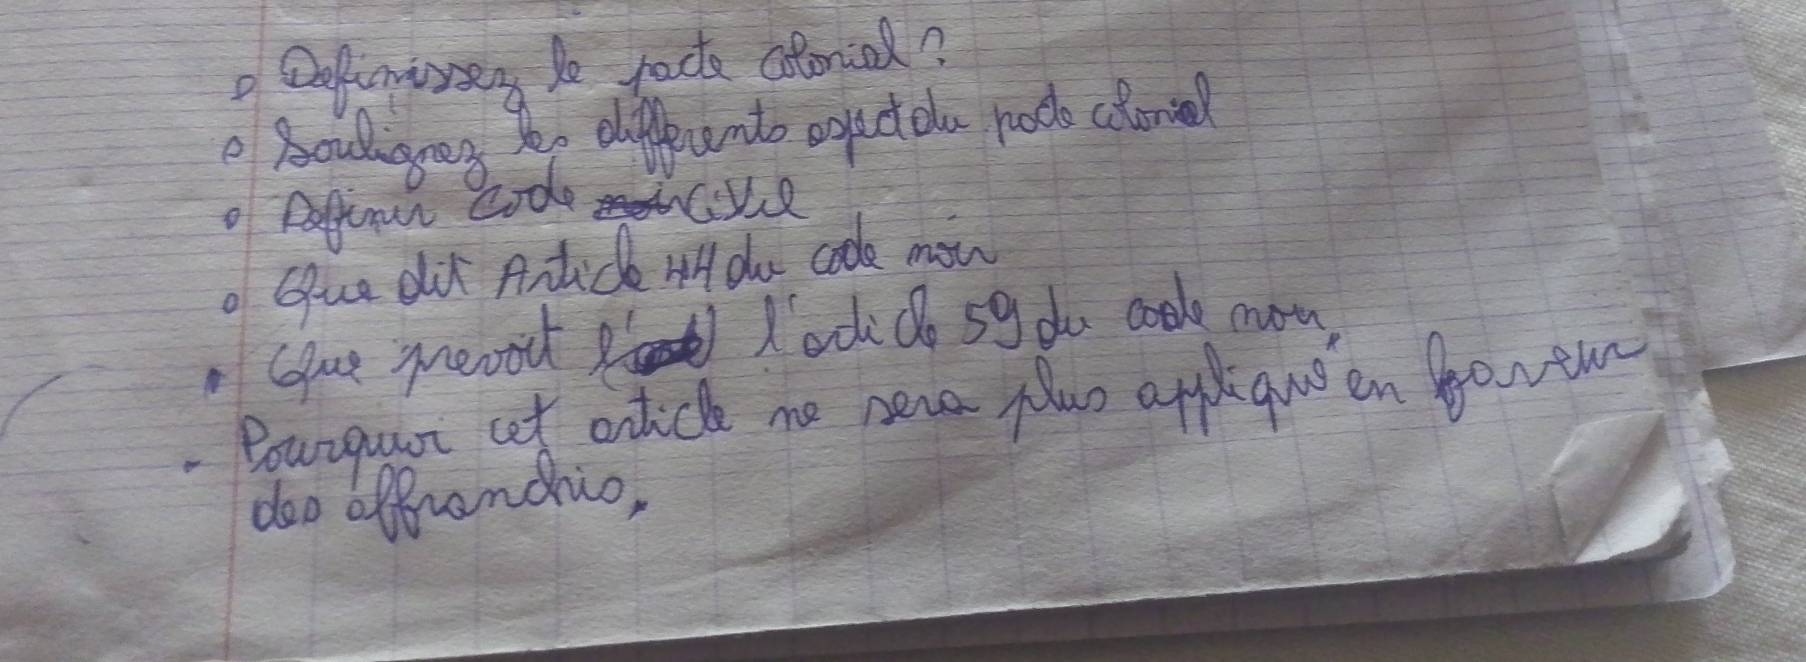 Definissez le pacte colonial?
Soulignez les differents aspect du pacte colonial
Definir code civil
Que dit Article 44 du code noir
Que prevoit l'article 59 du code noir.
Pourquoi cet article ne sera plus appliqué en faveur
des affranchis.